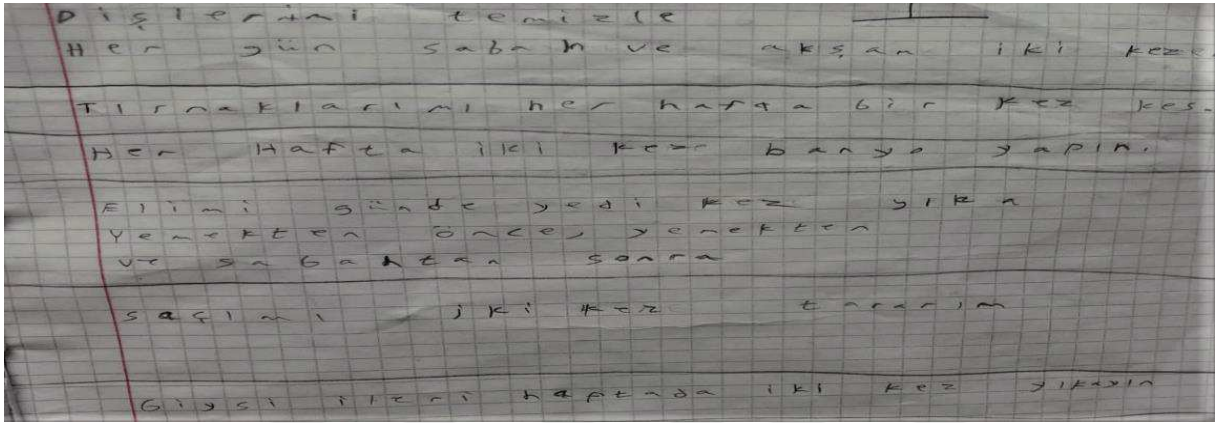 Dişlerimi temizle
Her gün sabah ve akşan iki keze
Tırnaklarımı her hafta bir kez kes.
Her Hafta iki keze banyo yapın.
Elimi günde yedi kez yıka
Yemekten önce, yenekten
ve sabahtan sonra
saçımı iki kez tararım
Giysi ileri haptada iki kez yıkayın